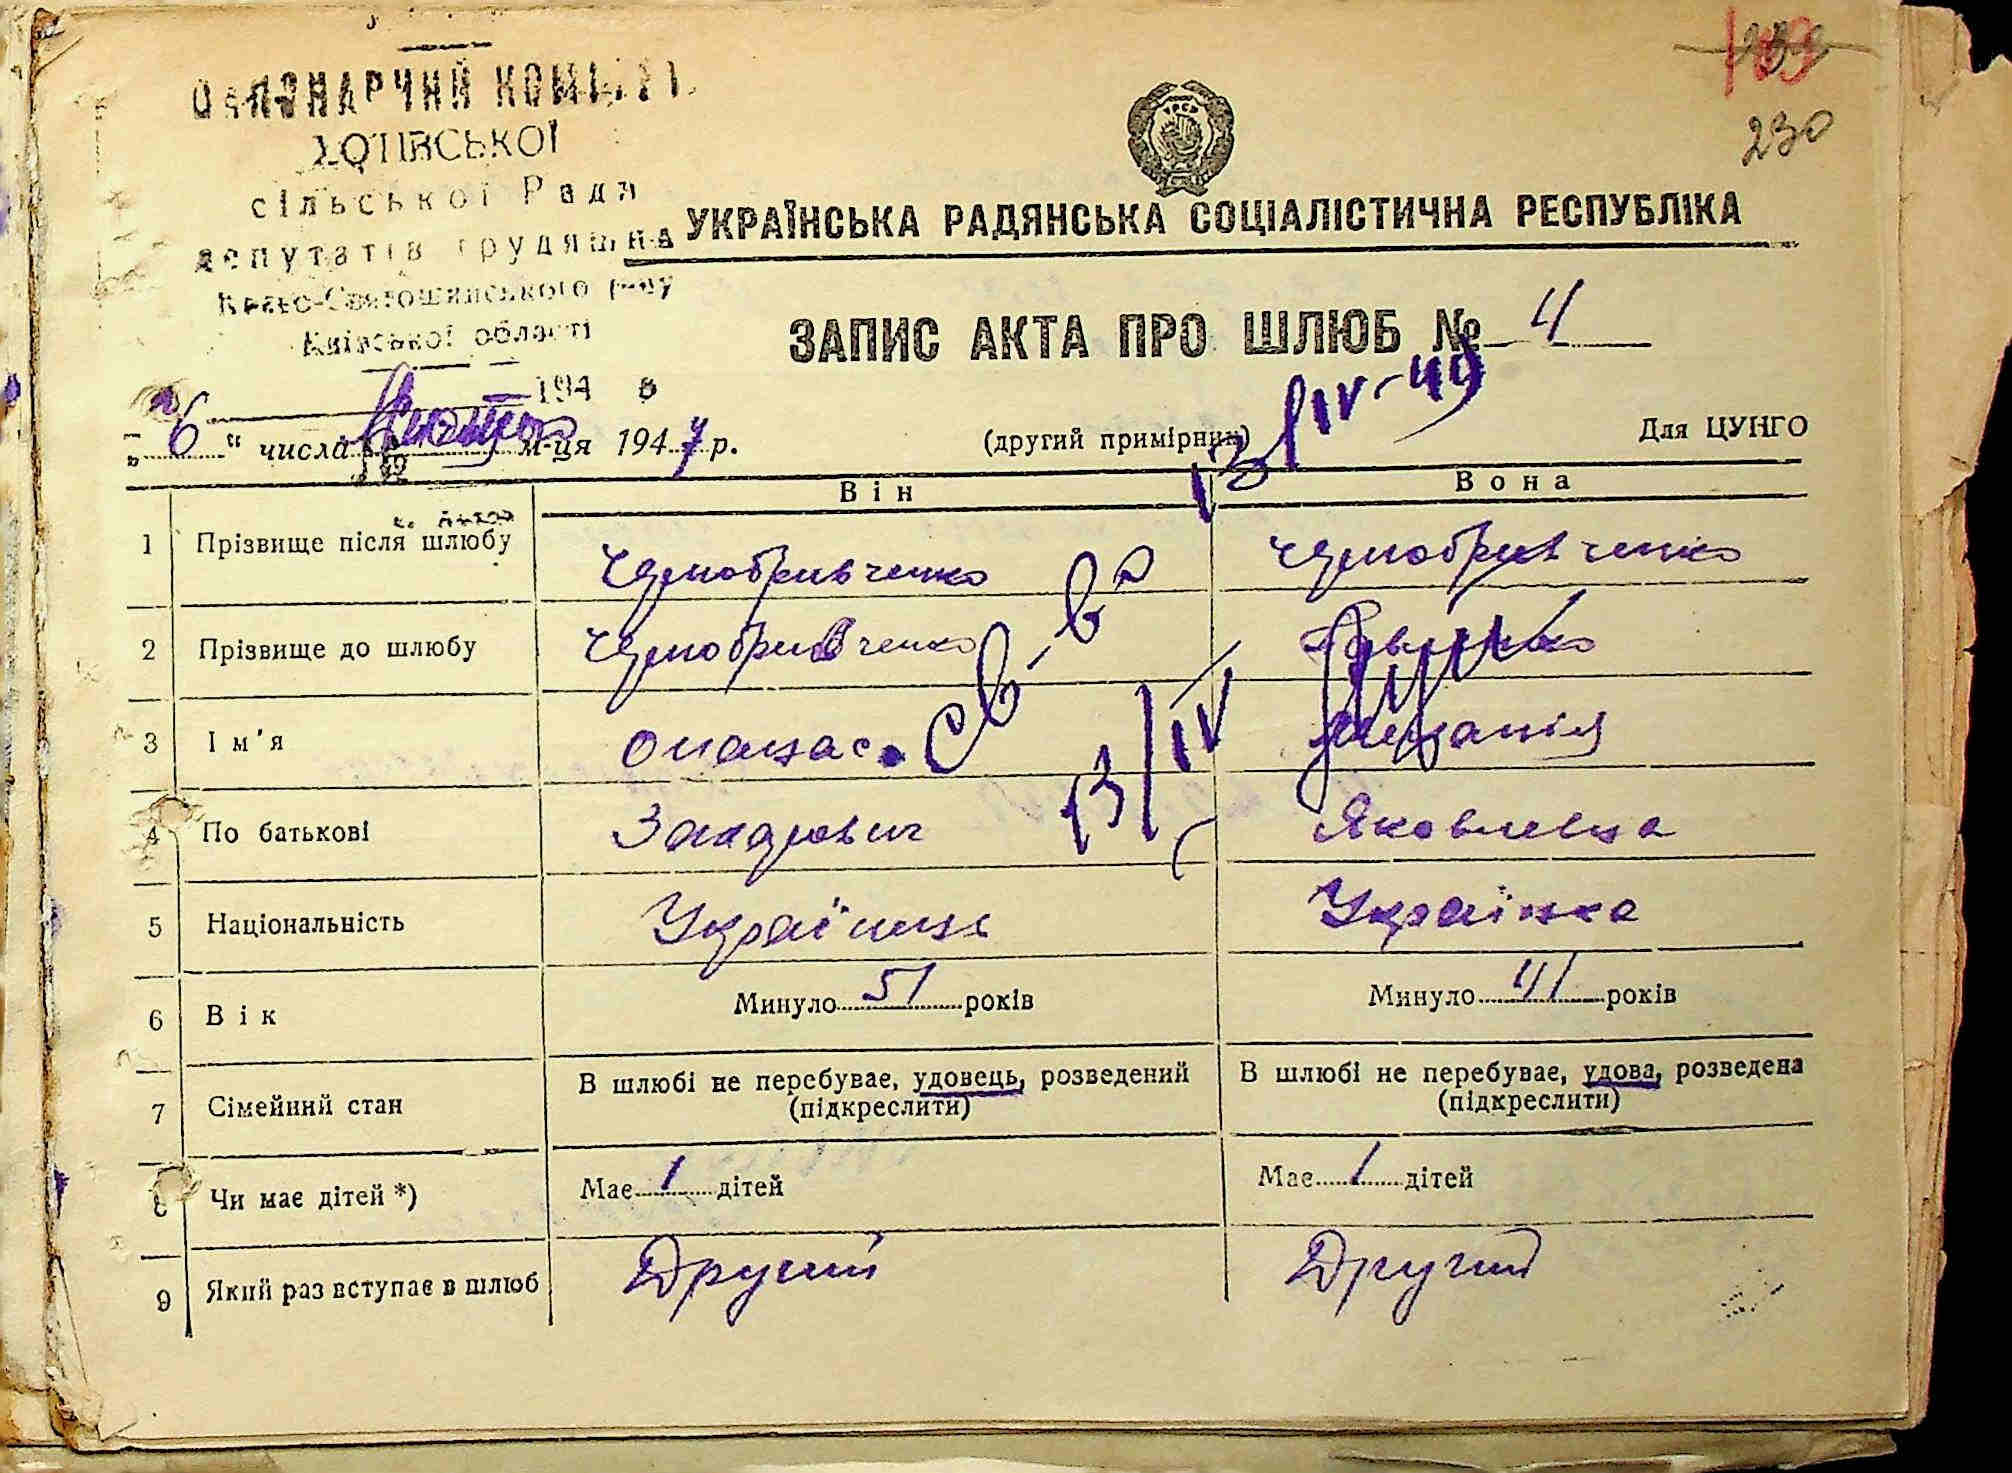 ВИКОНАВЧИЙ КОМІТЕТ
ХОТІВСЬКОЇ
сільської Ради
депутатів трудящих
Києво-Святошинського р-ну
Київської області
194 р
230
УКРАЇНСЬКА РАДЯНСЬКА СОЦІАЛІСТИЧНА РЕСПУБЛІКА
ЗАПИС АКТА ПРО ШЛЮБ № 4
„6“ числа Лютого м-ця 1947 р.
(другий примірник)
13/IV-49
Для ЦУНГО
Він
Вона
1 Прізвище після шлюбу Чернобривченко Чернобривченко
2 Прізвище до шлюбу Чернобривченко
3 Ім'я Опанас
Св-во
13/IV
4 По батькові Захарович Яковлевна
5 Національність Українець Українка
6 Вік Минуло 51 років Минуло 41 років
7 Сімейний стан В шлюбі не перебуває, удовець, розведений (підкреслити) В шлюбі не перебуває, удова, розведена (підкреслити)
8 Чи має дітей *) Має 1 дітей Має 1 дітей
9 Який раз вступає в шлюб Другий Другий